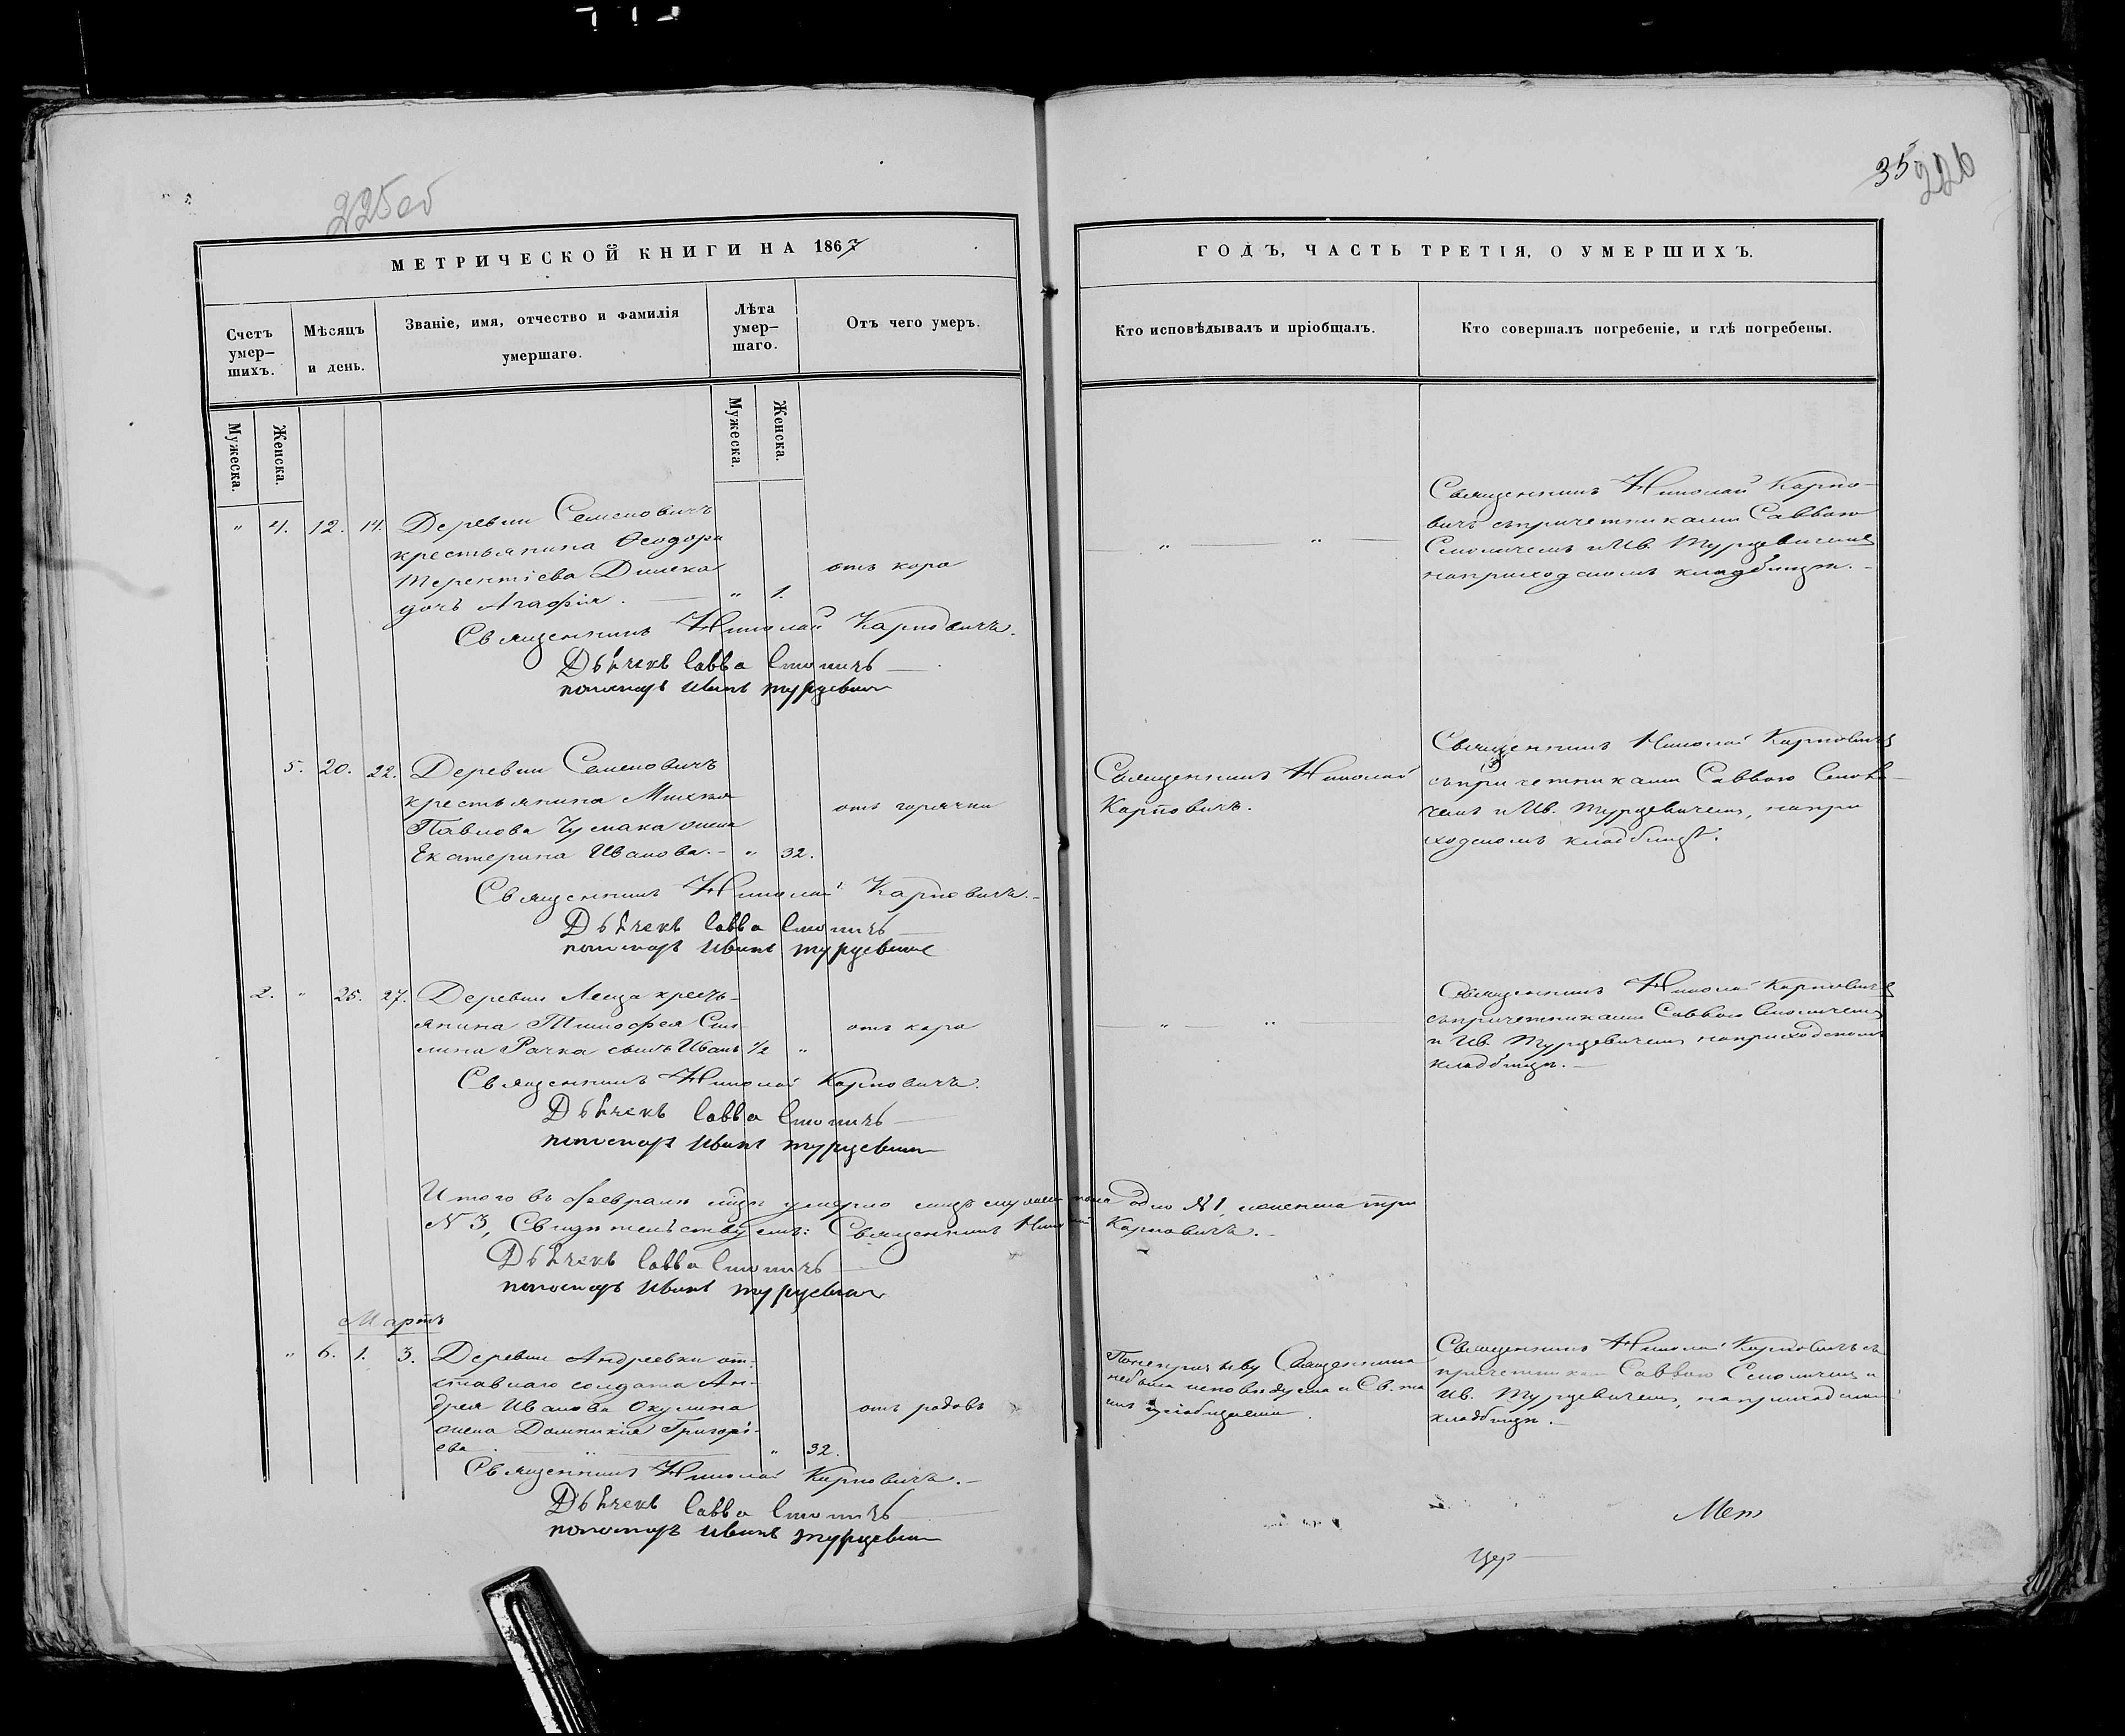 225об
35
226
МЕТРИЧЕСКОЙ КНИГИ НА 1867
ГОДЪ, ЧАСТЬ ТРЕТІЯ, О УМЕРШИХЪ.
Счетъ умер-шихъ.
Мѣсяцъ и день.
Званіе, имя, отчество и фамилія умершаго.
Лѣта умер-шаго.
Отъ чего умеръ.
Кто исповѣдывалъ и пріобщалъ.
Кто совершалъ погребеніе, и гдѣ погребены.
Мужеска.
Женска.
Мужеска.
Женска.
" 4. 12. 14. Деревни Семеновичъ
крестьянина Ѳеодора
Терентіева
дочь Агафія. " 1.
отъ кора
" "
Священникъ Николай Карпо-
вичъ съ причетниками Саввою
Смоличемъ и Ив. Турцевичемъ
на приходскомъ кладбищѣ.
Священникъ Николай Карповичъ.
Дьячекъ Савва Смоличъ
пономарь Иванъ Турцевич
5. 20. 22. Деревни Семеновичъ
крестьянина
Павлова Чумака жена
Екатерина Иванова. " 32.
отъ горячки
Священникъ Николай
Карповичъ.
Священникъ Николай Карповичъ
съ причетниками Саввою Смоли-
чемъ и Ив. Турцевичемъ, на при
ходскомъ кладбищѣ.
Священникъ Николай Карповичъ.
Дьячекъ Савва Смоличъ
пономарь Иванъ Турцевич
2. " 25. 27. Деревни крест-
янина Тимофея
Рачка сынъ Иванъ 1/2 "
отъ кора
" "
Священникъ Николай Карповичъ
съ причетниками Саввою Смоличемъ
и Ив. Турцевичемъ на приходскомъ
кладбищѣ.
Священникъ Николай Карповичъ.
Дьячекъ Савва Смоличъ
пономарь Иванъ Турцевич
Итого въ Февралѣ умерло мужеска пола одно №1, женска три
№ 3, Свидѣтельствуемъ: Священникъ Николай Карповичъ.
Дьячекъ Савва Смоличъ
пономарь Иванъ Турцевич
Мартъ
" 6. 1. 3. Деревни Андреевки от-
ставнаго солдата Ан-
дрея Иванова Окулича
жена Домникія Григорі-
ева " 32.
отъ родовъ
Священника
не была исповѣдуема и Св.
Священникъ Николай Карповичъ съ
причетниками Саввою Смоличемъ и
Ив. Турцевичемъ, на приходскомъ
кладбищѣ.
Священникъ Николай Карповичъ.
Дьячекъ Савва Смоличъ
пономарь Иванъ Турцевич
Мет
Цер